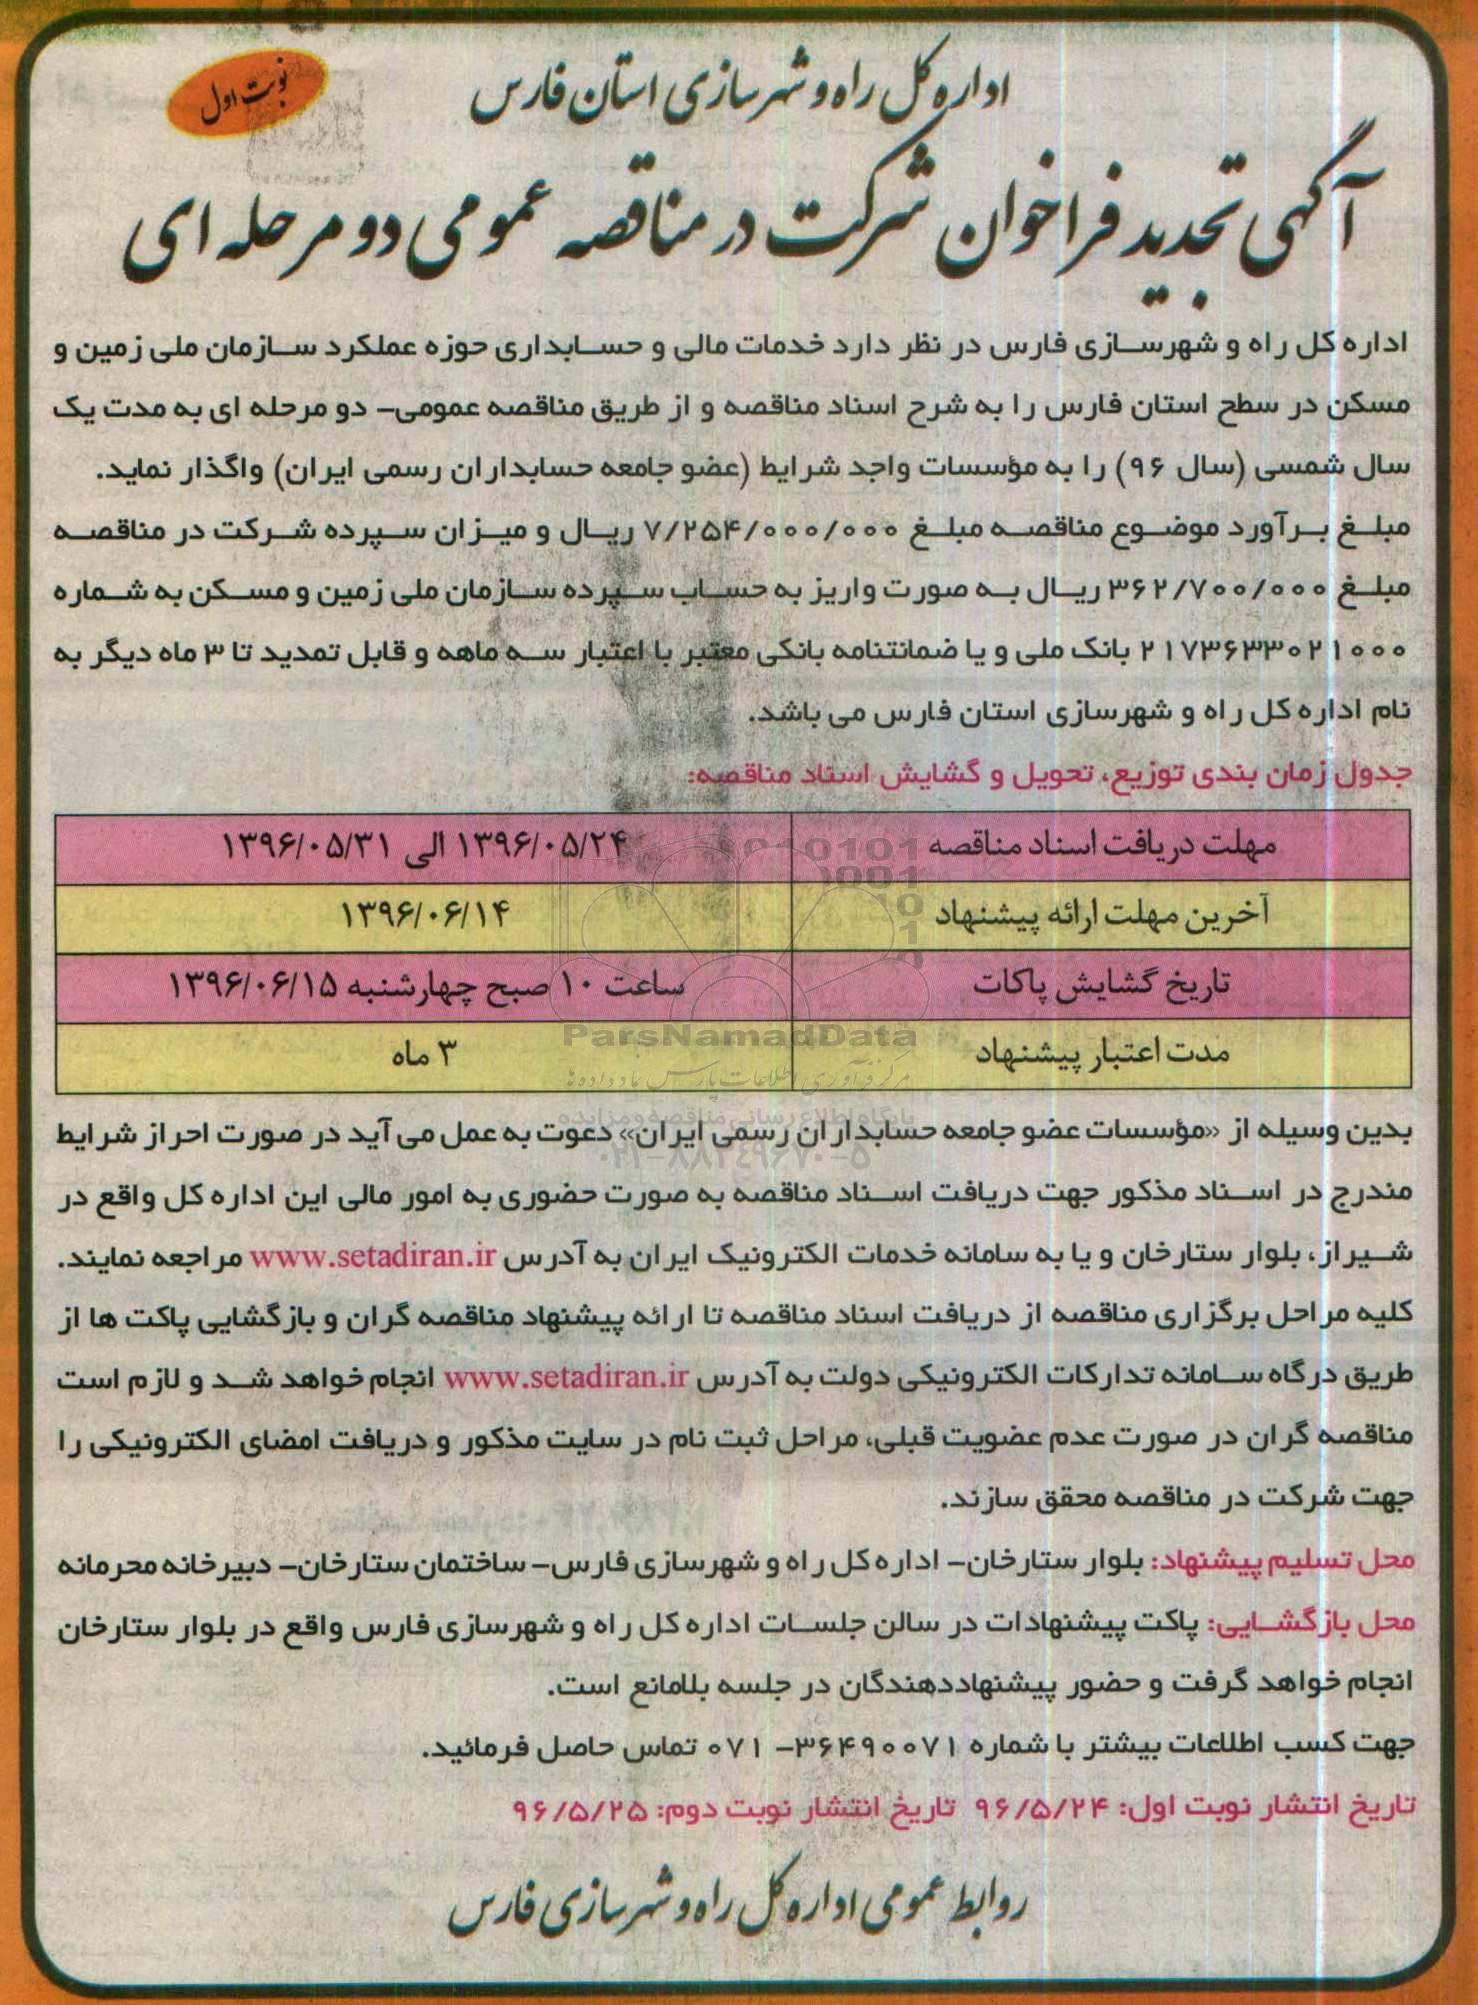 اداره کل راه و شهرسازی استان فارس
نوبت اول
آگهی تجدید فراخوان شرکت در مناقصه عمومی دو مرحله ای
اداره کل راه و شهرسازی فارس در نظر دارد خدمات مالی و حسابداری حوزه عملکرد سازمان ملی زمین و
مسکن در سطح استان فارس را به شرح اسناد مناقصه و از طریق مناقصه عمومی- دو مرحله ای به مدت یک
سال شمسی (سال ۹۶) را به مؤسسات واجد شرایط (عضو جامعه حسابداران رسمی ایران) واگذار نماید.
مبلغ برآورد موضوع مناقصه مبلغ ۷/۲۵۴/۰۰۰/۰۰۰ ریال و میزان سپرده شرکت در مناقصه
مبلغ ۳۶۲/۷۰۰/۰۰۰ ریال به صورت واریز به حساب سپرده سازمان ملی زمین و مسکن به شماره
۲۱۷۳۶۳۳۰۲۱۰۰۰ بانک ملی و یا ضمانتنامه بانکی معتبر با اعتبار سه ماهه و قابل تمدید تا ۳ ماه دیگر به
نام اداره کل راه و شهرسازی استان فارس می باشد.
جدول زمان بندی توزیع، تحویل و گشایش اسناد مناقصه:
مهلت دریافت اسناد مناقصه ۱۳۹۶/۰۵/۲۴ الی ۱۳۹۶/۰۵/۳۱
آخرین مهلت ارائه پیشنهاد ۱۳۹۶/۰۶/۱۴
تاریخ گشایش پاکات ساعت ۱۰ صبح چهارشنبه ۱۳۹۶/۰۶/۱۵
مدت اعتبار پیشنهاد ۳ ماه
ParsNamadData
پایگاه اطلاع رسانی مناقصه و مزایده
۰۲۱-۸۸۳۴۹۶۷۰-۵
بدین وسیله از «مؤسسات عضو جامعه حسابداران رسمی ایران» دعوت به عمل می آید در صورت احراز شرایط
مندرج در اسناد مذکور جهت دریافت اسناد مناقصه به صورت حضوری به امور مالی این اداره کل واقع در
شیراز، بلوار ستارخان و یا به سامانه خدمات الکترونیک ایران به آدرس www.setadiran.ir مراجعه نمایند.
کلیه مراحل برگزاری مناقصه از دریافت اسناد مناقصه تا ارائه پیشنهاد مناقصه گران و بازگشایی پاکت ها از
طریق درگاه سامانه تدارکات الکترونیکی دولت به آدرس www.setadiran.ir انجام خواهد شد و لازم است
مناقصه گران در صورت عدم عضویت قبلی، مراحل ثبت نام در سایت مذکور و دریافت امضای الکترونیکی را
جهت شرکت در مناقصه محقق سازند.
محل تسلیم پیشنهاد: بلوار ستارخان- اداره کل راه و شهرسازی فارس- ساختمان ستارخان- دبیرخانه محرمانه
محل بازگشایی: پاکت پیشنهادات در سالن جلسات اداره کل راه و شهرسازی فارس واقع در بلوار ستارخان
انجام خواهد گرفت و حضور پیشنهاددهندگان در جلسه بلامانع است.
جهت کسب اطلاعات بیشتر با شماره ۳۶۴۹۰۰۷۱- ۰۷۱ تماس حاصل فرمائید.
تاریخ انتشار نوبت اول: ۹۶/۵/۲۴ تاریخ انتشار نوبت دوم: ۹۶/۵/۲۵
روابط عمومی اداره کل راه و شهرسازی فارس